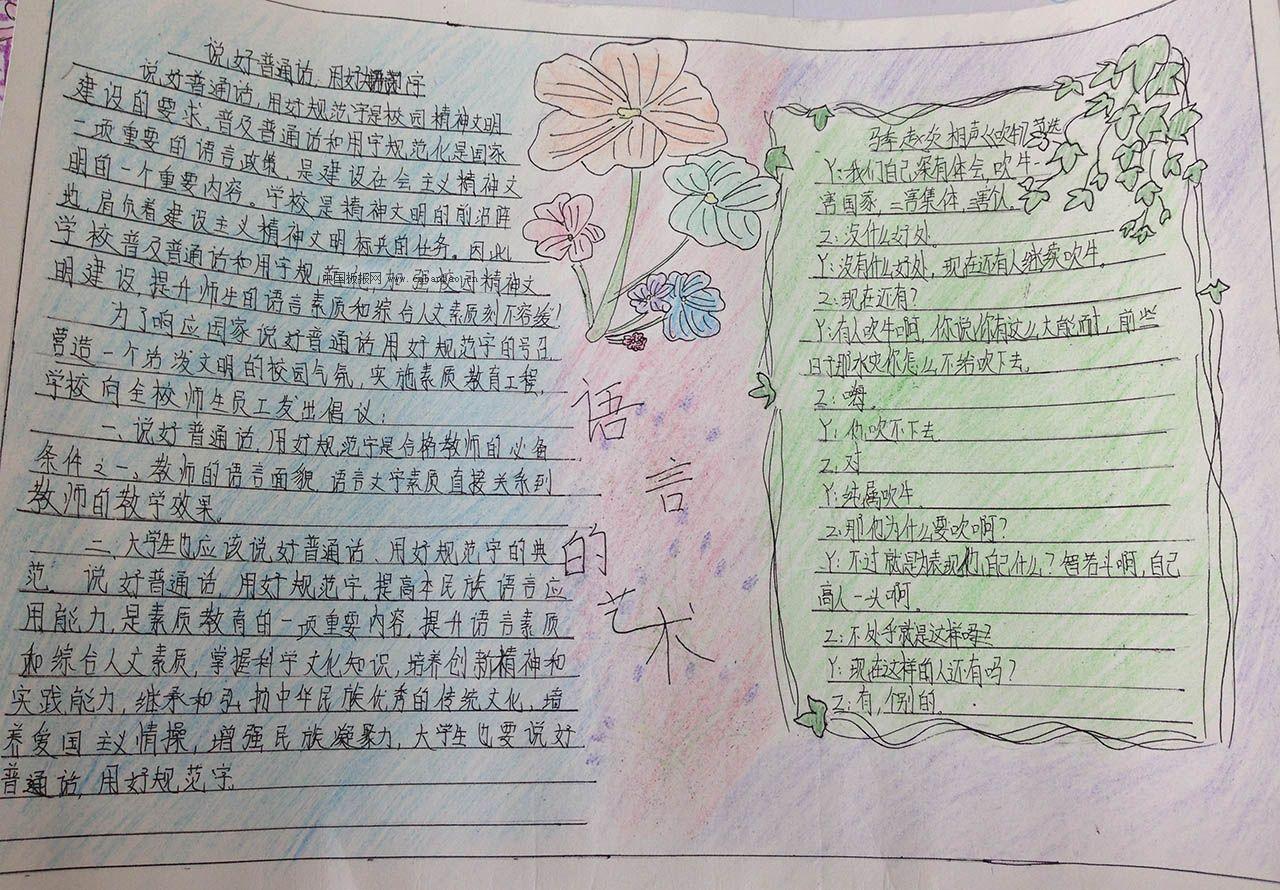 说好普通话、用好规范字
说好普通话,用好规范字是校园精神文明
建设的要求,普及普通话和用字规范化是国家
一项重要的语言政策,是建设社会主义精神文
明的一个重要内容。学校是精神文明的前沿阵
地,肩负着建设主义精神文明标兵的任务。因此
学校普及普通话和用字规范 加强校园精神文
中国板报网 www.cnbanbao.cn
明建设,提升师生的语言素质和综合人文素质刻不容缓!
为了响应国家说好普通话用好规范字的号召
营造一个 文明的校园气氛,实施素质教育工程,
学校向全校师生员工发出倡议:
一、说好普通话,用好规范字是合格教师的必备
条件之一、教师的语言面貌、语言文字素质直接关系到
教师的教学效果。
二、大学生也应该说好普通话、用好规范字的典
范。说好普通话,用好规范字,提高本民族语言应
用能力,是素质教育的一项重要内容,提升语言素质
和综合人文素质,掌握科学文化知识,培养创新精神和
实践能力,继承和弘扬中华民族优秀的传统文化,增
养爱国主义情操,增强民族凝聚力,大学生也要说好
普通话,用好规范字。
语
言
的
艺
术
马季赵炎相声《吹牛》节选
Y:我们自己深有体会,吹牛一
害国家,二害集体,三害个人。
Z:没什么好处。
Y:没有什么好处,现在还有人继续吹牛。
Z:现在还有?
Y:有人吹牛啊,你说你有这么大能耐,前些
日子那水灾你怎么不给吹下去。
Z:嗯。
Y:你吹不下去
Z:对
Y:纯属吹牛
Z:那他为什么要吹啊?
Y:不过就是为表现他自己什么?智若斗啊,自己
高人一头啊。
Z:不处乎就是这样吗?
Y:现在这样的人还有吗?
Z:有,个别的。